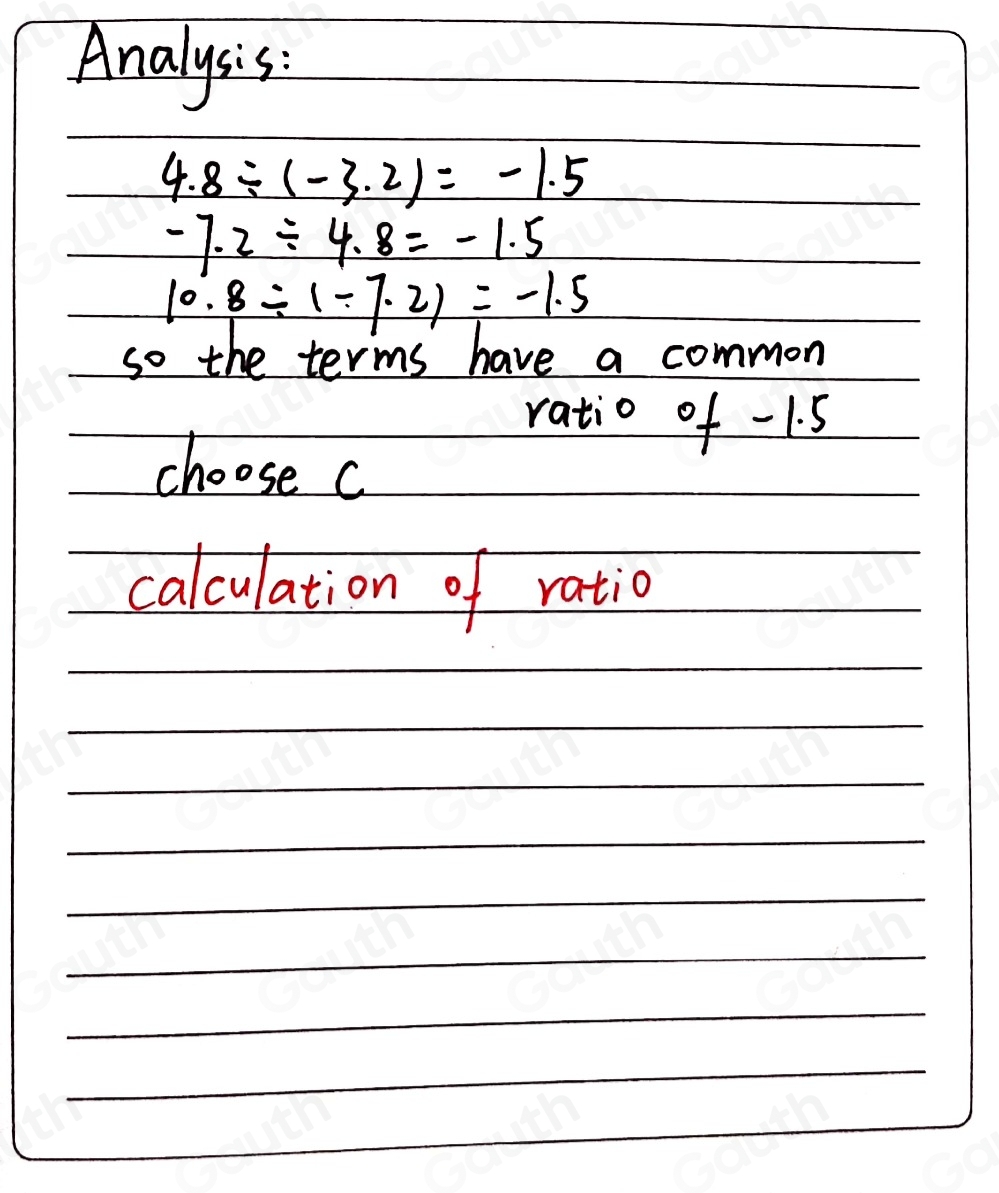 Analysis:
4.8 ÷ (-3.2) = -1.5
-7.2 ÷ 4.8 = -1.5
10.8 ÷ (-7.2) = -1.5
so the terms have a common
ratio of -1.5
choose C
calculation of ratio
Gauth